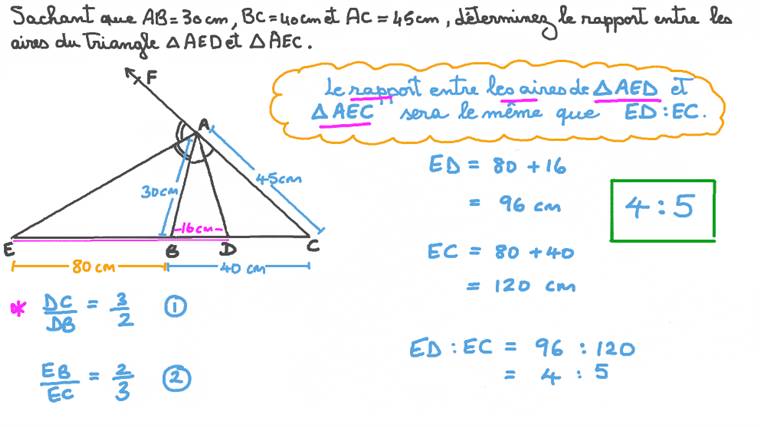 Sachant que AB = 30 cm, BC = 40 cm et AC = 45 cm, déterminez le rapport entre les
aires du triangle △AED et △AEC.
Le rapport entre les aires de △AED et
△AEC sera le même que ED : EC.
F
A
30 cm
45 cm
16 cm
E
B
D
C
80 cm
40 cm
* DC/DB = 3/2 ①
EB/EC = 2/3 ②
ED = 80 + 16
= 96 cm
EC = 80 + 40
= 120 cm
4 : 5
ED : EC = 96 : 120
= 4 : 5